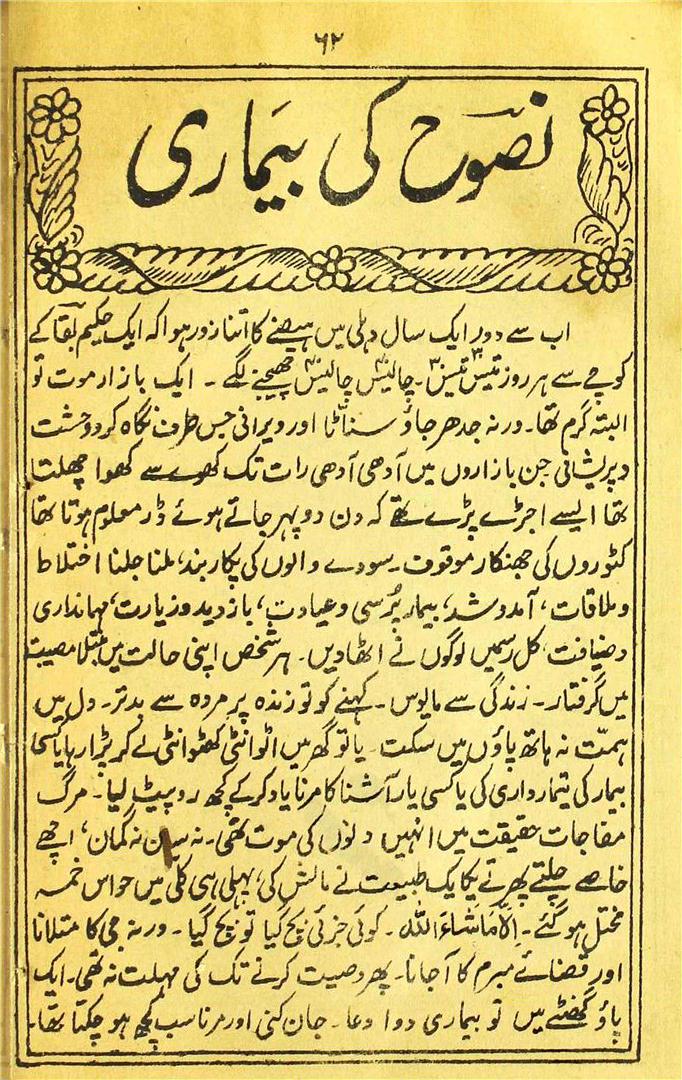 ۶۲
نصوح کی بیماری
اب سے دور ایک سال دہلی میں ہیضے کا اتنا زور ہوا کہ ایک حکیم بقا کے
کوچے سے ہر روز تیس تیس۔ چالیس چالیس چھیجنے لگے۔ ایک بازار موت تو
البتہ گرم تھا۔ ورنہ جدھر جاؤ سناٹا اور ویرانی جس طرف نگاہ کرو وحشت
و پریشانی جن بازاروں میں آدھی آدھی رات تک کھوے سے کھوا چھلتا
تھا ایسے اجڑے پڑے تھے کہ دن دوپہر جاتے ہوئے ڈر معلوم ہوتا تھا
کٹوروں کی جھنکار موقوف۔ سودے والوں کی پکار بند، ملنا جلنا اختلاط
و ملاقات، آمدوشد، بیمار پُرسی و عیادت، بازدید و زیارت، مہمانداری
و ضیافت، کل رسمیں لوگوں نے اٹھا دیں۔ ہر شخص اپنی حالت میں مبتلا مصیبت
میں گرفتار۔ زندگی سے مایوس۔ کہنے کو تو زندہ پر مردہ سے بدتر۔ دل میں
ہمت نہ ہاتھ پاؤں میں سکت۔ یا تو گھر میں اٹوانٹی کھٹوانٹی لے کر پڑا رہا یا کسی
بیمار کی تیمارداری کی یا کسی یار آشنا کا مرنا یاد کر کے کچھ رو پیٹ لیا۔ مرگ
مفاجات حقیقت میں انہیں دنوں کی موت تھی۔ نہ سان نہ گمان، اچھے
خاصے چلتے پھرتے یکایک طبیعت نے مالش کی، پہلی ہی کلی میں حواس خمسہ
مختل ہو گئے۔ اِلّا مَاشَاءَ اللہ۔ کوئی جزئی بچ گیا تو بچ گیا۔ ورنہ جی کا متلانا
اور قضائے مبرم کا آجانا۔ پھر وصیت کرنے تک کی مہلت نہ تھی۔ ایک
پاؤ گھنٹے میں تو بیماری دوا دعا۔ جان کنی اور مرنا سب کچھ ہو چکتا تھا۔